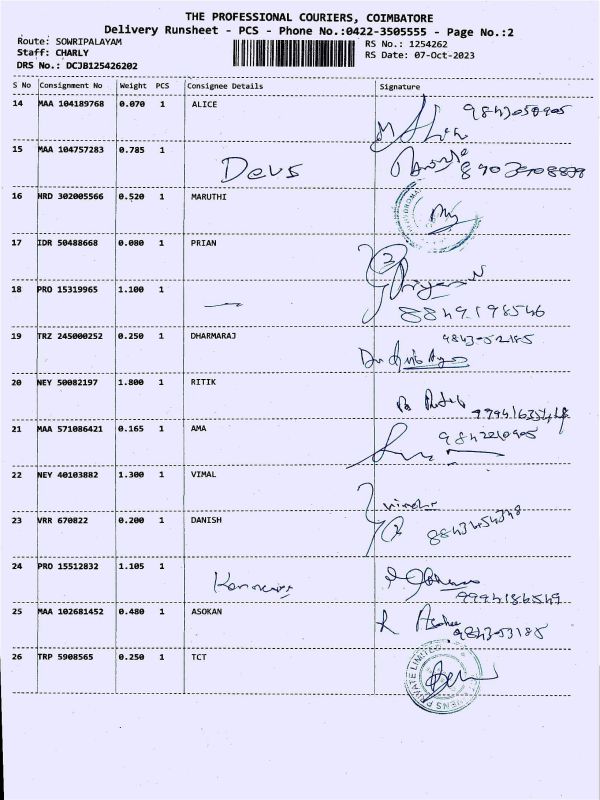 THE PROFESSIONAL COURIERS, COIMBATORE
Delivery Runsheet - PCS - Phone No.:0422-3505555 - Page No.:2
Route: SOWRIPALAYAM
RS No.: 1254262
Staff: CHARLY
RS Date: 07-Oct-2023
DRS No.: DCJB125426202
S No Consignment No Weight PCS Consignee Details Signature
14 MAA 104189768 0.070 1 ALICE
15 MAA 104757283 0.785 1 Devs
16 HRD 302005566 0.520 1 MARUTHI
17 IDR 50488668 0.080 1 PRIAN
18 PRO 15319965 1.100 1
8849198546
19 TRZ 245000252 0.250 1 DHARMARAJ
20 NEY 50082197 1.800 1 RITIK
21 MAA 571086421 0.165 1 AMA
22 NEY 40103882 1.300 1 VIMAL
23 VRR 670822 0.200 1 DANISH
24 PRO 15512832 1.105 1
9994186549
25 MAA 102681452 0.480 1 ASOKAN
26 TRP 5908565 0.250 1 TCT
PRIVATE LIMITED